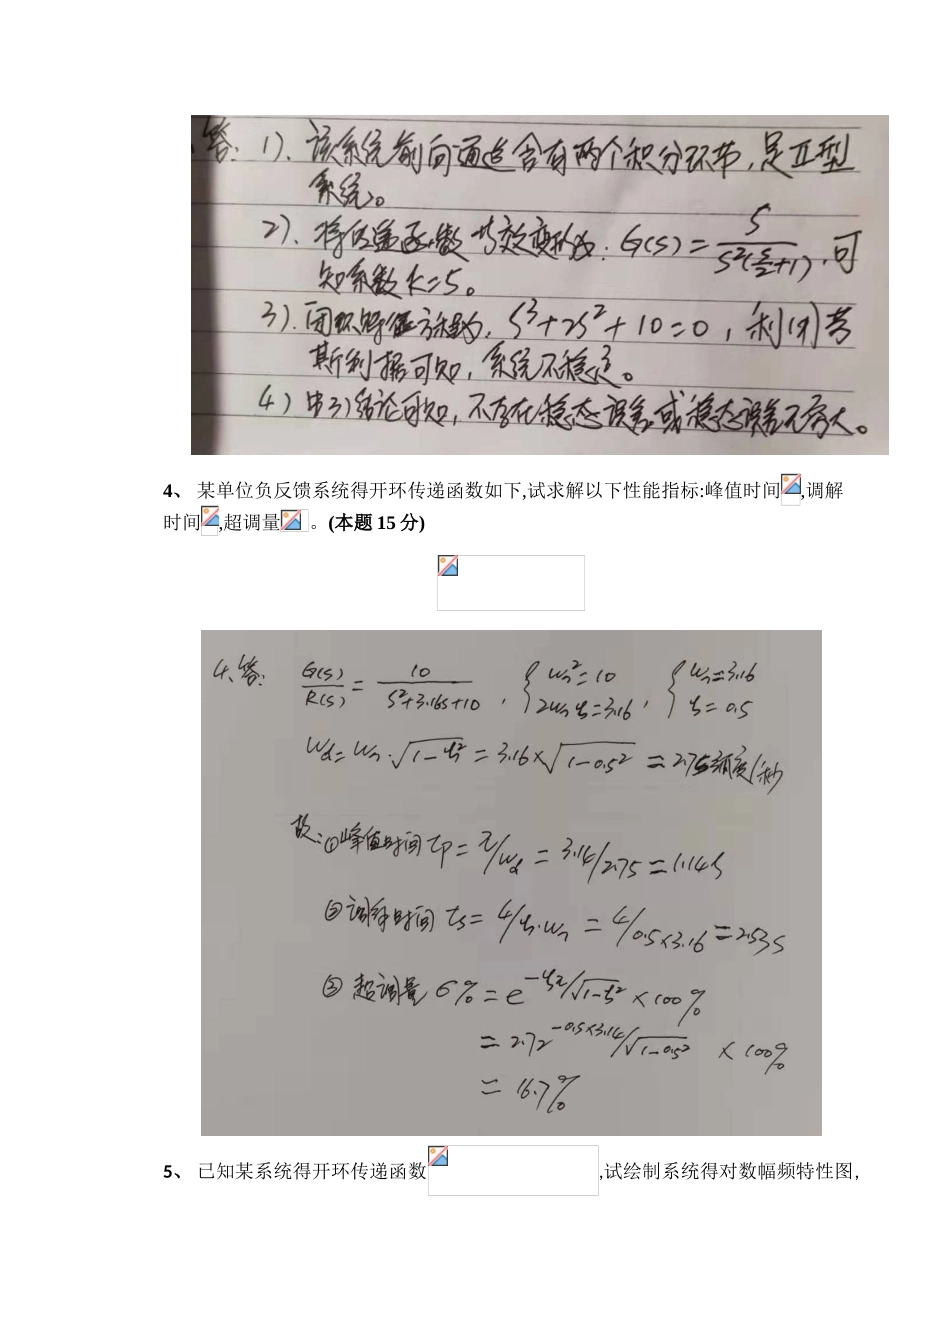 答：1）、该系统前向通道含有两个积分环节，是Ⅱ型
系统。
2）、将传递函数等效变形为：G(s)=5/(s²(s/2+1))，可
知系数K=5。
3）、闭环特征方程为，S³+2S²+10=0，利用劳
斯判据可知，系统不稳定。
4）由3)结论可知，不存在稳态误差或稳态误差无穷大。
4、 某单位负反馈系统得开环传递函数如下,试求解以下性能指标:峰值时间 ,调解
时间 ,超调量 。(本题 15 分)
4、答： G(s)/R(s) = 10/(s²+3.16s+10)，{ωn²=10 2ωnξ=3.16，{ωn=3.16 ξ=0.5
ωd=ωn·√(1-ξ²) = 3.16×√(1-0.5²) = 2.75弧度/秒
故：①峰值时间 tp = π/ωd = 3.14/2.75 = 1.14s
②调解时间 ts = 4/ξ·ωn = 4/0.5×3.16 = 2.53s
③ 超调量 σ% = e^(-ξπ/√(1-ξ²)) ×100%
= 2.72^(-0.5×3.14/√(1-0.5²)) ×100%
= 16.7%
5、 已知某系统得开环传递函数 ,试绘制系统得对数幅频特性图，